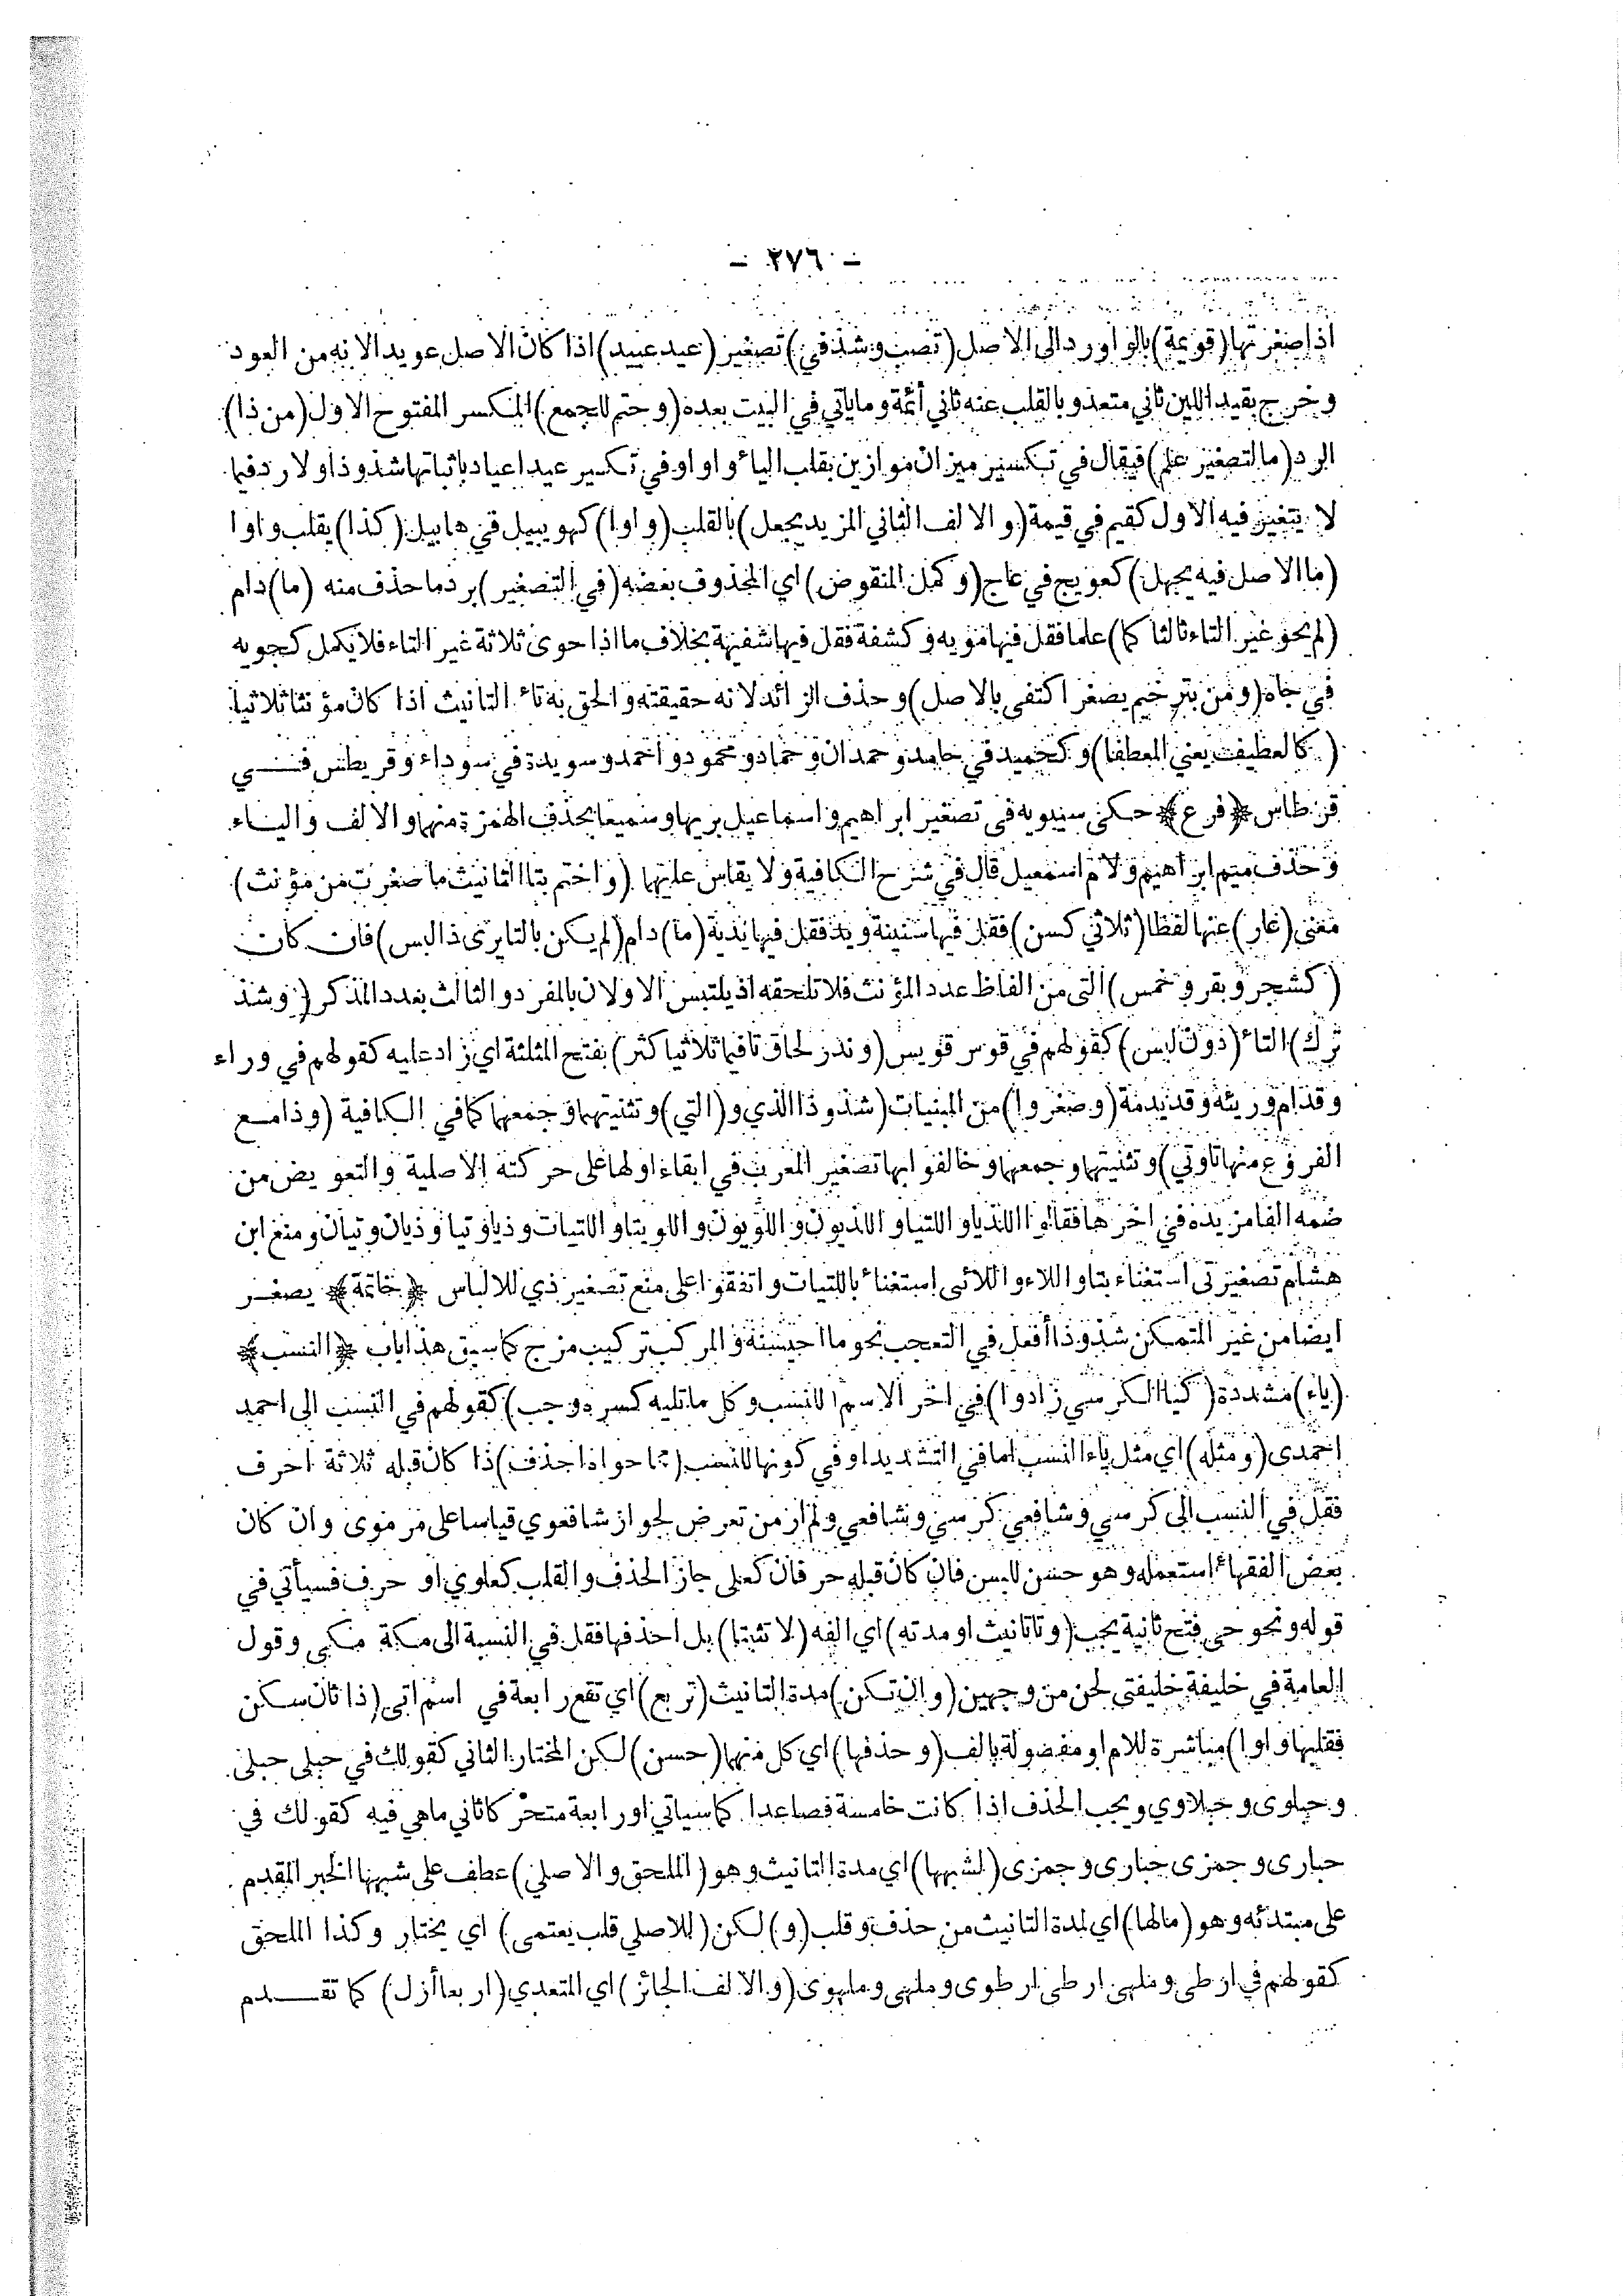 - ٢٧٦ -
اذا صغرتها (قويمة) بالواو ردا الى الاصل (تصب وشذ في) تصغير (عيد عييد) اذا كان الاصل عويدا لانه من العود
وخرج بقيد اللين ثاني متعد وبالقلب عنه ثاني أئمة وما ياتي في البيت بعده (وحتم للجمع) المنكسر المفتوح الاول (من ذا)
الرد (ما لتصغير علم) فيقال في تكسير ميزان موازين بقلب الياء واوا وفي تكسير عيد اعياد باثباتها شذوذا ولا رد فيما
لا يتغير فيه الاول كقيم في قيمة (والالف الثاني المزيد يجعل) بالقلب (واوا) كهويبيل في هابيل (كذا) يقلب واوا
(ما الاصل فيه يجهل) كعويج في عاج (وكمل المنقوص) اي المحذوف بعضه (في التصغير) برد ما حذف منه (ما) دام
(لم يحو غير التاء ثالثا كما) علما فقل فيها مويه وكشفة فقل فيها شفيهة بخلاف ما اذا حوى ثلاثة غير التاء فلا يكمل كجويه
في جاه (ومن بترخيم يصغر اكتفى بالاصل) وحذف الزائد لانه حقيقته والحق به تاء التانيث اذا كان مؤنثا ثلاثيا
(كالعطيف يعني المعطفا) وكحميد في حامد وحمدان وحماد ومحمود واحمد وسويدة في سوداء وقريطس في
قرطاس ﴿فرع﴾ حكى سيبويه في تصغير ابراهيم واسماعيل بريها وسميعا بحذف الهمزة منهما والالف والياء
وحذف ميم ابراهيم ولام اسمعيل قال في شرح الكافية ولا يقاس عليهما (واختم بتا التانيث ما صغرت من مؤنث)
معنى (عار) عنها لفظا (ثلاثي كسن) فقل فيها سنينة ويد فقل فيها يدية (ما) دام (لم يكن بالتا يرى ذا لبس) فان كان
(كشجر وبقر وخمس) التي من الفاظ عدد المؤنث فلا تلحقه اذ يلتبس الاولان بالمفرد والثالث بعدد المذكر (وشذ
ترك) التاء (دون لبس) كقولهم في قوس قويس (وندر لحاق تا فيما ثلاثيا كثر) بفتح المثلثة اي زاد عليه كقولهم في وراء
وقدام وريئة وقديديمة (وصغروا) من المبنيات (شذوذا الذي و (التي) وتثنيتهما وجمعهما كما في الكافية (وذا مع
الفروع منها تا وتي) وتثنيتهما وجمعهما وخالفوا بها تصغير المعرب في ابقاء اولها على حركته الاصلية والتعويض من
ضمه الفا مزيدة في اخرها فقالوا اللذيا واللتيا واللذيون واللويون واللويتا واللتيات وذيا وتيا وذيان وتيان ومنع ابن
هشام تصغير تي استغناء بتا واللاء واللائي استغناء باللتيات واتفقوا على منع تصغير ذي للالباس ﴿خاتمة﴾ يصغر
ايضا من غير المتمكن شذوذا أفعل في التعجب نحو ما احيسنة والمركب تركيب مزج كما سبق هذا باب ﴿النسب﴾
(ياء) مشددة (كيا الكرسي زادوا) في اخر الاسم (للنسب وكل ما تليه كسره وجب) كقولهم في النسب الى احمد
احمدى (ومثله) اي مثل ياء النسب اما في التشديد او في كونها للنسب (مما حواه احذف) ذا كان قبله ثلاثة احرف
فقل في النسب الى كرسي وشافعي كرسي وشافعي ولم ار من تعرض لجواز شافعوي قياسا على مرموى وان كان
بعض الفقهاء استعمله وهو حسن للبس فان كان قبله حرفان كعلى جاز الحذف والقلب كعلوي او حرف فسيأتي في
قوله ونحو حى فتح ثانية يجب (وتا تانيث او مدته) اي الفه (لا تثبتا) بل احذفها فقل في النسبة الى مكة مكي وقول
العامة في خليفة خليفتى لحن من وجهين (وان تكن) مدة التانيث (تربع) اي تقع رابعة في اسم اتى (ذا ثان سكن
فقلبها واوا) مباشرة للام او مفصولة بالف (وحذفها) اي كل منهما (حسن) لكن المختار الثاني كقولك في حبلى حبلى
وحبلوى وحبلاوي ويجب الحذف اذا كانت خامسة فصاعدا كما سياتي او رابعة متحركا ثاني ما هي فيه كقولك في
حبارى وجمزى حبارى وجمزى (لشبهها) اي مدة التانيث وهو (الملحق والاصلي) عطف على شبهها الخبر المقدم
على مبتدئه وهو (مالها) اي لمدة التانيث من حذف وقلب (و) لكن (للاصلي قلب يعتمى) اي يختار وكذا الملحق
كقولهم في ارطى وملهى ارطى ارطوى وملهى وملهوى (والالف الجائز) اي المتعدي (اربعا أزل) كما تقدم